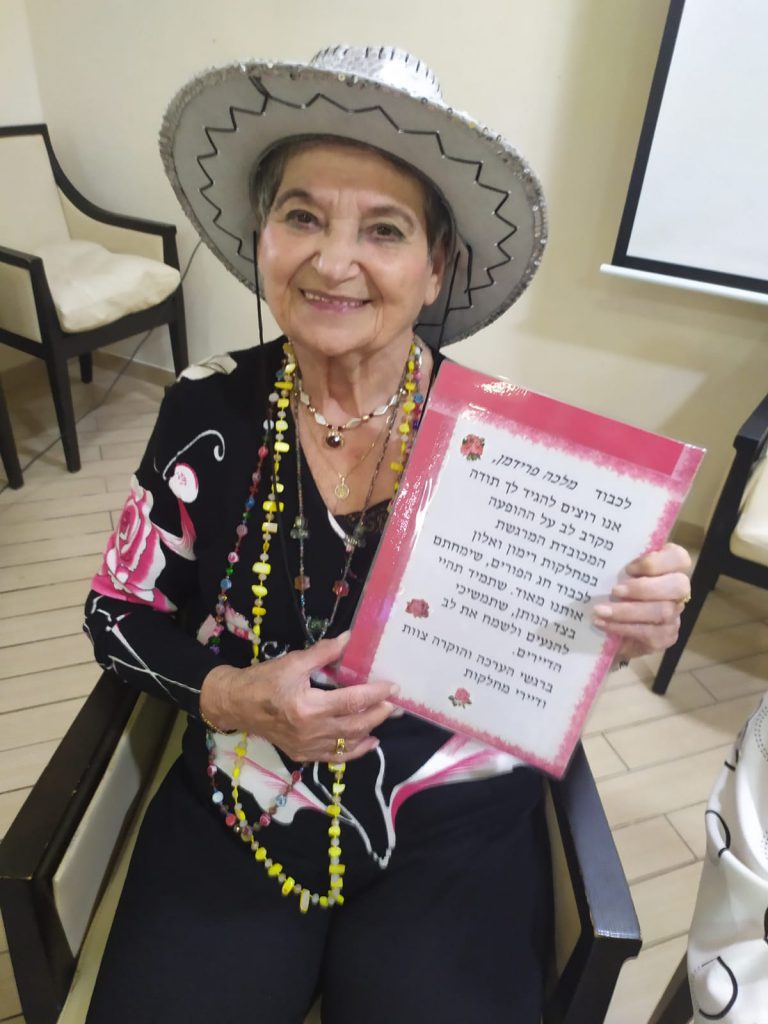 לכבוד מלכה פרידמן,
אנו רוצים להגיד לך תודה
מקרב לב על ההופעה
המכובדת המרגשת
במחלקות רימון ואלון
לכבוד חג הפורים, שימחתם
אותנו מאוד. שתמיד תהיי
בצד הנותן, שתמשיכי
להנעים ולשמח את לב
הדיירים.
ברגשי הערכה והוקרה צוות
ודיירי מחלקות